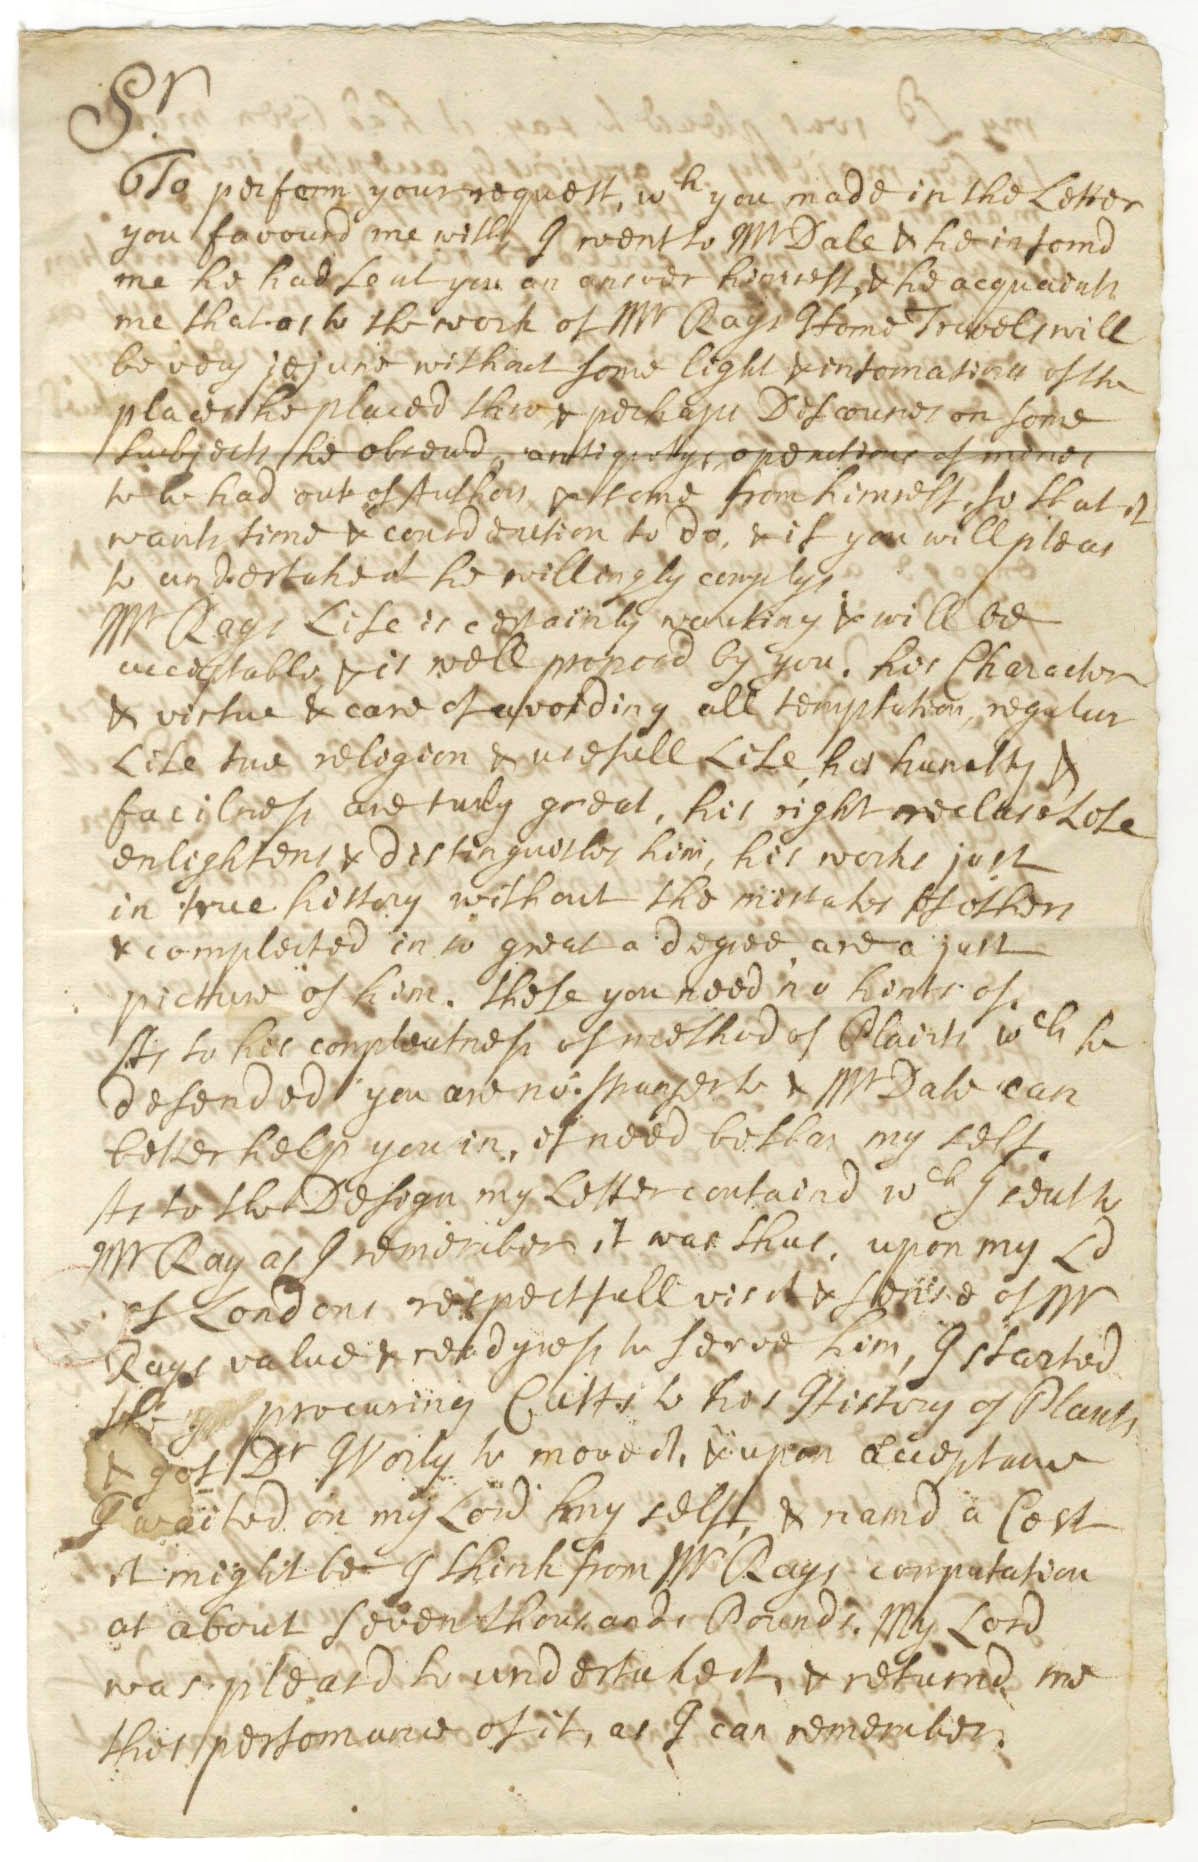 Sr
To perform your request, wh you made in the Letter
you favourd me with, I went to Mr Dale & he informd
me he had sent you an answer himself, & he acquaints
me that as to the work of Mr Rays Home Travels will
be very jejune without some light & informations of the
places he placed & perhaps Discourses on some
subjects he obserd, antiquitys, operations of mines
to be had out of Authors & some from himself, so that it
wants time & consideration to do, & if you will pleas
to undertake it he willingly complys
Mr Rays Life is certainly wanting & will be
acceptable & is well proposd by you. his Character
& virtue & care of avoiding all temptation, regular
Life true religion & usefull Life, his humilty &
facilness are truly great, his right recluse Life
enlightens & distinguishes him, his works just
in true history without the mistakes of others
& compleited in so great a degree, are a just
picture of him. these you need no hints of.
As to his compleatness of method of Plants wch he
defended you are no stranger to & Mr Dale can
better help you in, if need be than my self.
As to the Design my Letter containd wch I sent to
Mr Ray as I remember it was thus, upon my Ld
of Londons respectfull visit & sense of Mr
Rays value & readyness to serve him, I started
the procuring Cutts to his History of Plants
& got Dr to move it, & upon acceptance
I waited on my Lord my self, & namd a Cost
it might be I think from Mr Rays computation
at about seven thousands Pounds. My Lord
was pleasd to undertake it, & returnd me
this performance of it, as I can remember.